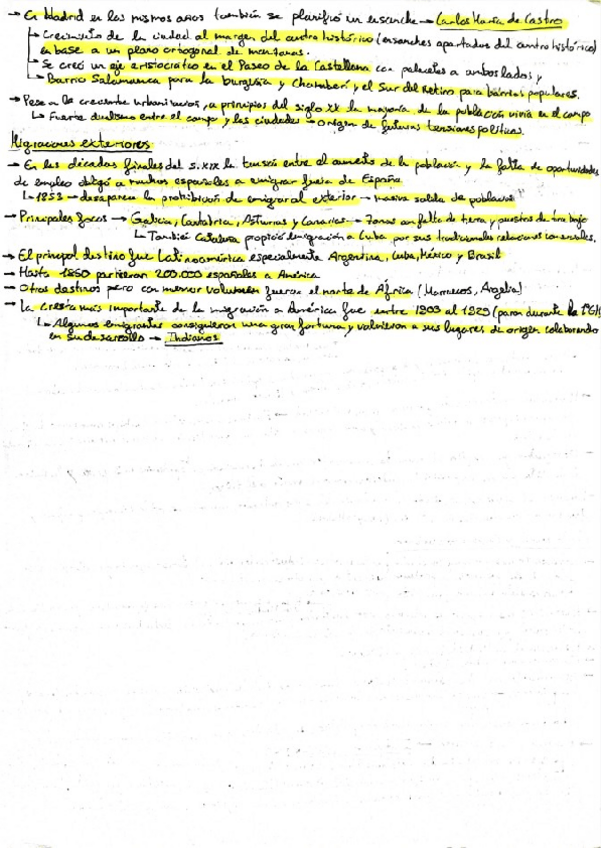 → En Madrid en los mismos años también se planificó un ensanche → Carlos María de Castro
↳ Crecimiento de la ciudad al margen del centro histórico (ensanches apartados del centro histórico)
en base a un plano ortogonal de manzanas.
↳ Se creó un eje aristocrático en el Paseo de la Castellana con palacetes a ambos lados y
↳ Barrio Salamanca para la burguesía y Chamberí y el Sur del Retiro para barrios populares.
→ Pese a la creciente urbanización, a principios del siglo XX la mayoría de la población vivía en el campo
↳ Fuerte dualismo entre el campo y las ciudades → origen de futuras tensiones políticas.
Migraciones exteriores:
→ En las décadas finales del s. XIX la tensión entre el aumento de la población y la falta de oportunidades
de empleo obligó a muchos españoles a emigrar fuera de España
↳ 1853 → desaparece la prohibición de emigrar al exterior → masiva salida de población
→ Principales focos → Galicia, Cantabria, Asturias y Canarias → Zonas con falta de tierra y puestos de trabajo
↳ También Cataluña propició emigración a Cuba por sus tradicionales relaciones comerciales.
→ El principal destino fue Latinoamérica especialmente Argentina, Cuba, México y Brasil
→ Hasta 1860 partieron 200.000 españoles a América
→ Otros destinos pero con menor volumen fueron el norte de África (Marruecos, Argelia)
→ La más importante de la migración a América fue entre 1903 al 1929 (paron durante la 1ªGM)
↳ Algunos emigrantes consiguieron una gran fortuna y volvieron a sus lugares de origen colaborando
en su desarrollo → Indianos